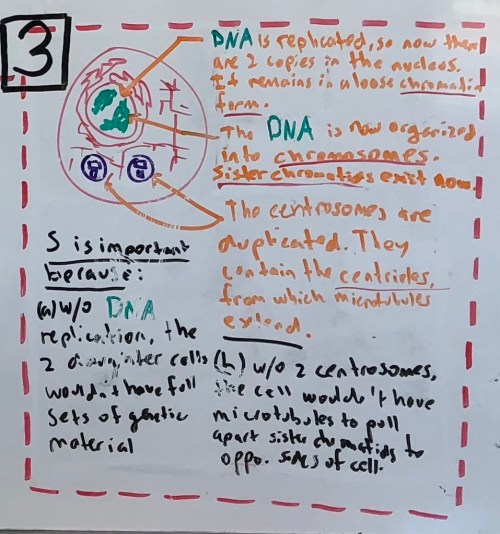 3
DNA is replicated, so now there
are 2 copies in the nucleus.
It remains in a loose chromatin
form.
The DNA is now organized
into chromosomes.
Sister chromatids exist now.
The centrosomes are
duplicated. They
contain the centrioles,
from which microtubules
extend.
S is important
because:
(a) w/o DNA
replication, the
2 daughter cells
wouldn't have full
sets of genetic
material
(b) w/o 2 centrosomes,
the cell wouldn't have
microtubules to pull
apart sister chromatids to
oppo. sides of cell.